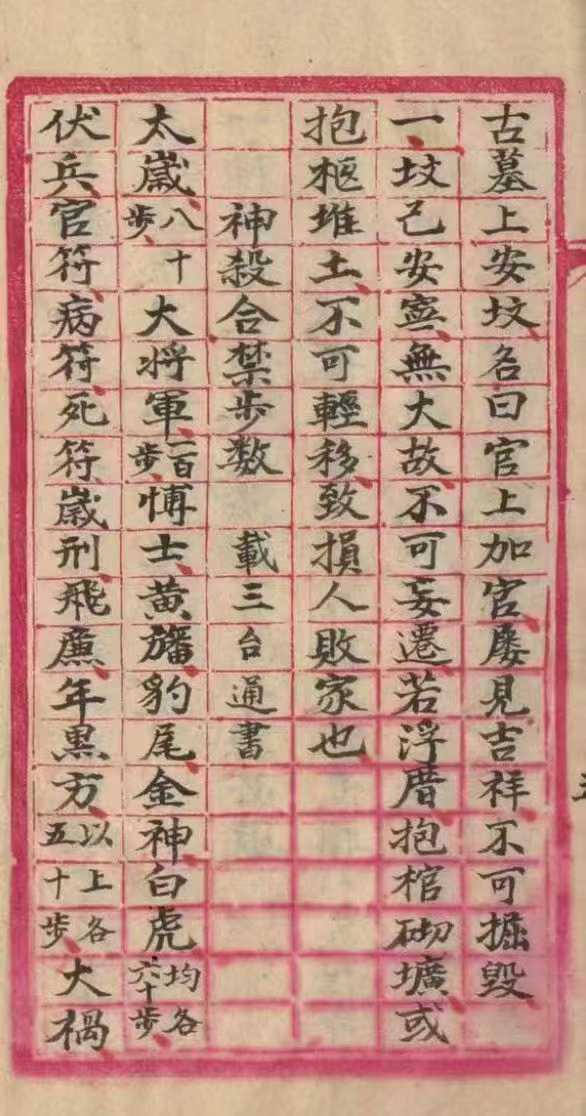 古墓上安坟名曰官上加官屡見吉祥不可掘毀
一坟己安寕無大故不可妄遷若浮厝抱棺砌壙或
抱柩堆土不可輕移致損人敗家也
神殺合禁步数　載三台通書
太歲八十步大將軍一百步愽士黃旛豹尾金神白虎均各六十步
伏兵官符病符死符歲刑飛廉年黒方以上各五十步大禍